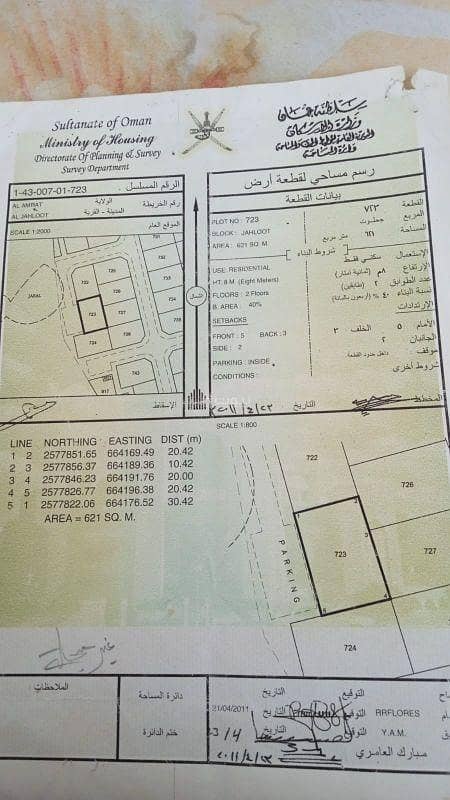 Sultanate of Oman
Ministry of Housing
Directorate of Planning & Survey
Survey Department
سلطنة عمان
وزارة الإسكان
دائرة المساحة
1-43-007-01-723 الرقم المسلسل
AL AMRAT الولاية
AL JAHLOOT المدينة - القرية
رقم الخريطة
SCALE 1:2000 الموقع العام
JABAL
723
724
917
الإسقاط
الشمال
رسم مساحي لقطعة أرض
بيانات القطعة
PLOT NO : 723
BLOCK : JAHLOOT
AREA : 621 SQ. M.
القطعة ٧٢٣
المربع جحلوت
المساحة ٦٢١ متر مربع
شروط البناء
USE RESIDENTIAL
HT. 8 M. (Eight Meters)
FLOORS : 2 Floors
B. AREA : 40%
SETBACKS
FRONT : 5 BACK : 3
SIDE : 2
PARKING : INSIDE
CONDITIONS :
الإستعمال سكني فقط
الإرتفاع ٨م (ثمانية امتار)
عدد الطوابق ٢ (طابقين)
نسبة البناء ٤٠٪ (أربعون بالمائة)
الإرتدادات
الأمام ٥ الخلف ٣
الجانبان ٢
موقف : داخل حدود القطعة
شروط أخرى
المخطط
التاريخ
SCALE 1:800
LINE NORTHING EASTING DIST (m)
1 2 2577851.65 664169.49 20.42
2 3 2577856.37 664189.36 10.42
3 4 2577846.23 664191.76 20.00
4 5 2577826.77 664196.38 20.42
5 1 2577822.06 664176.52 30.42
AREA = 621 SQ. M.
722
726
723
727
724
PARKING
1
3
4
5
الملاحظات:
دائرة المساحة
ختم الدائرة
21/04/2011 التاريخ التوقيع RRFLORES
التاريخ التوقيع Y.A.M.
التاريخ التوقيع مبارك العامري